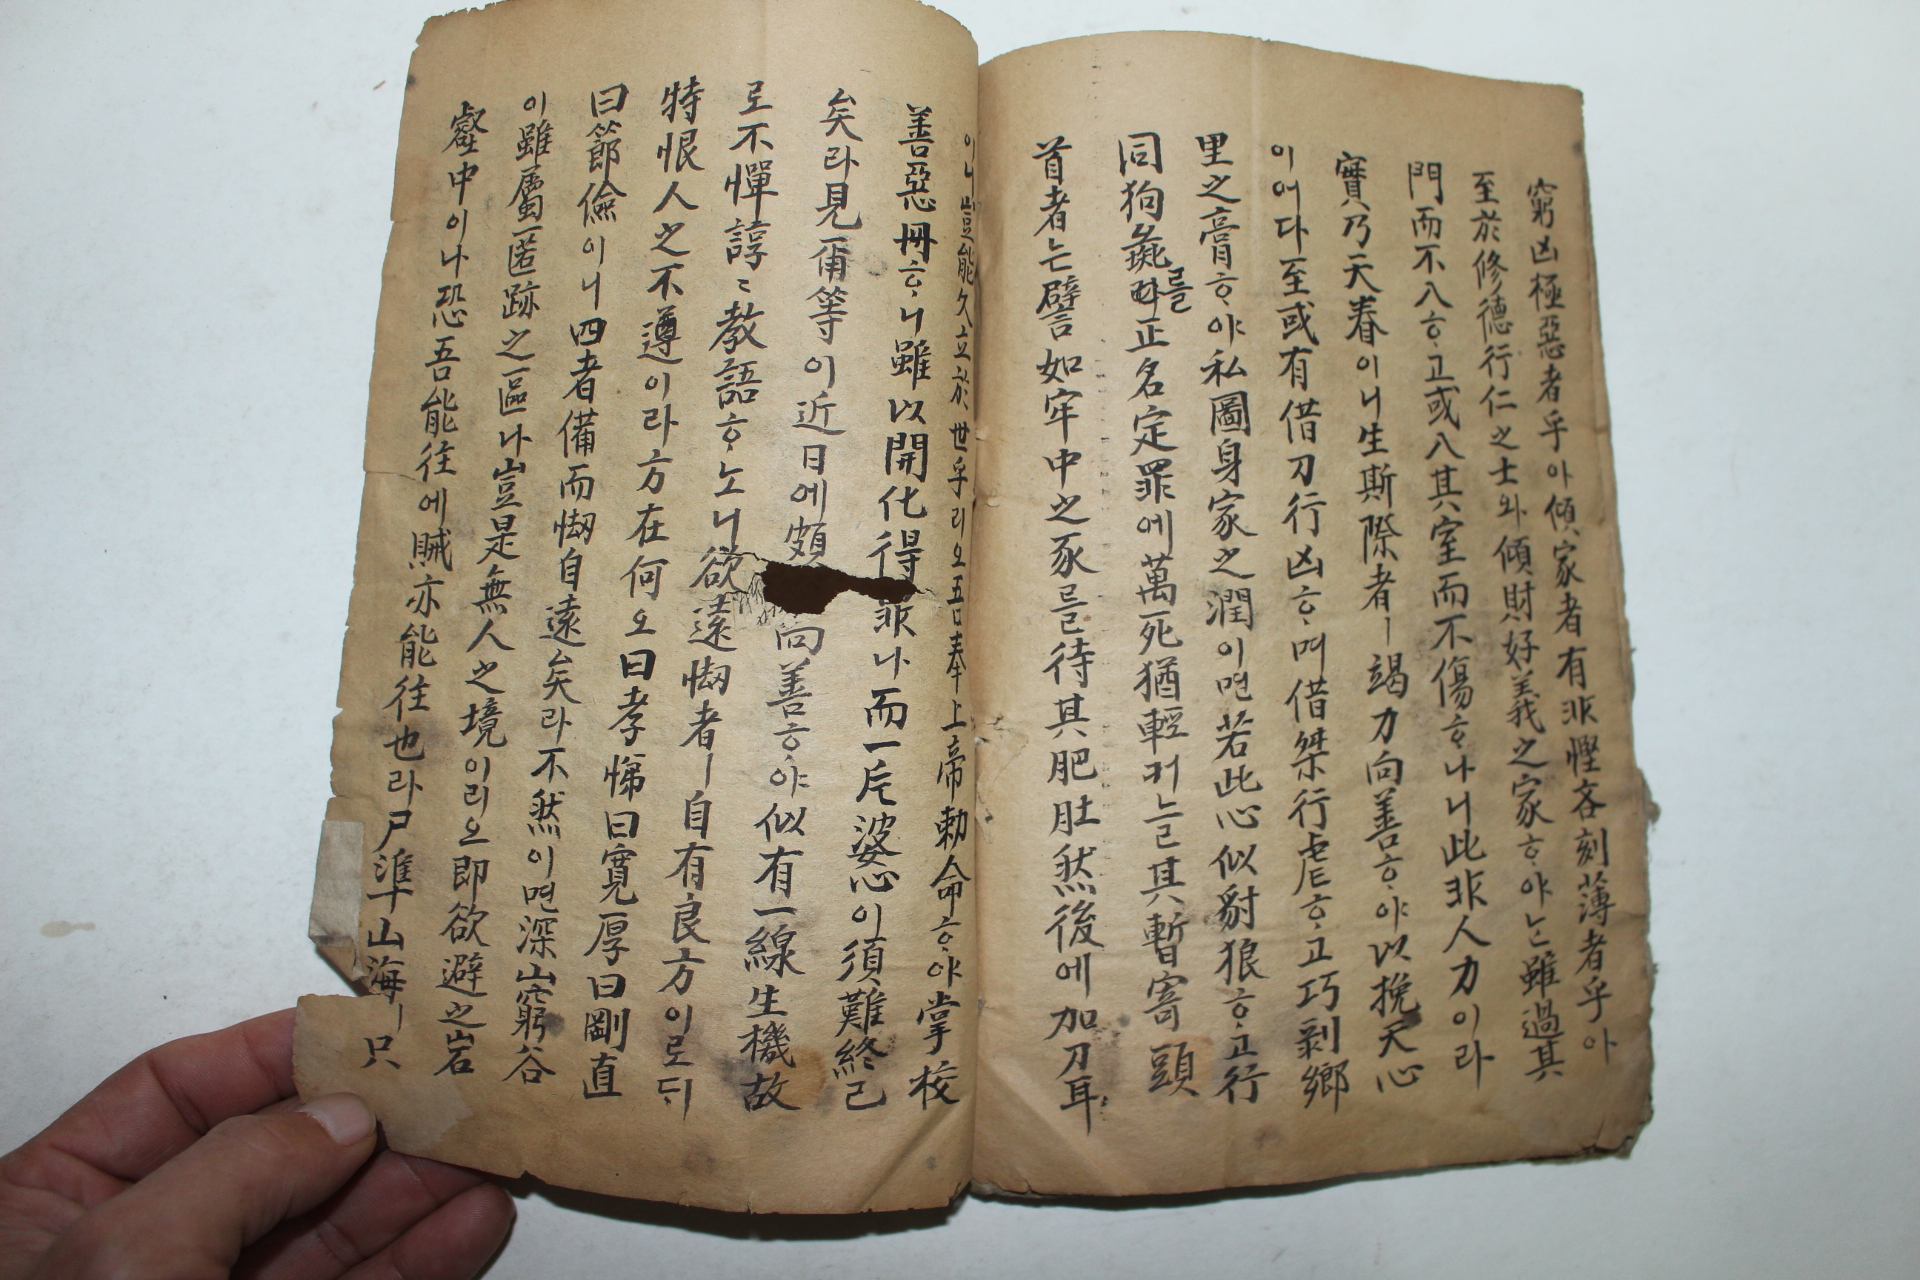 窮凶極惡者乎아傾家者有非慳吝刻薄者乎아
至於修德行仁之士와傾財好義之家ᄒᆞ야ᄂᆞᆫ雖過其
門而不入ᄒᆞ고或入其室而不傷ᄒᆞ나니此非人力이라
實乃天眷이니生斯際者ㅣ竭力向善ᄒᆞ야以挽天心
이어다至或有借刀行凶ᄒᆞ며借桀行虐ᄒᆞ고巧剥鄉
里之膏ᄒᆞ야私圖身家之潤이면若此心似豺狼ᄒᆞ고行
同狗彘를正名定罪에萬死猶輕커늘其暫寄頭
首者는譬如牢中之豕를待其肥肚然後에加刀耳
이니豈能久立於世乎리오吾奉上帝勅命ᄒᆞ야掌校
善惡冊ᄒᆞ니雖以開化得罪나而一片婆心이須難終已
矣라見爾等이近日에頗向善ᄒᆞ야似有一線生機故
로不憚諄〻教語ᄒᆞ노니欲遠刼者ㅣ自有良方이로ᄃᆡ
特恨人之不遵이라方在何오曰孝悌曰寬厚曰剛直
曰節儉이니四者備而刼自遠矣라不然이면深山窮谷
이雖屬匿跡之區나豈是無人之境이리오即欲避之岩
壑中이나恐吾能往에賊亦能往也라尸準山海ㅣ只